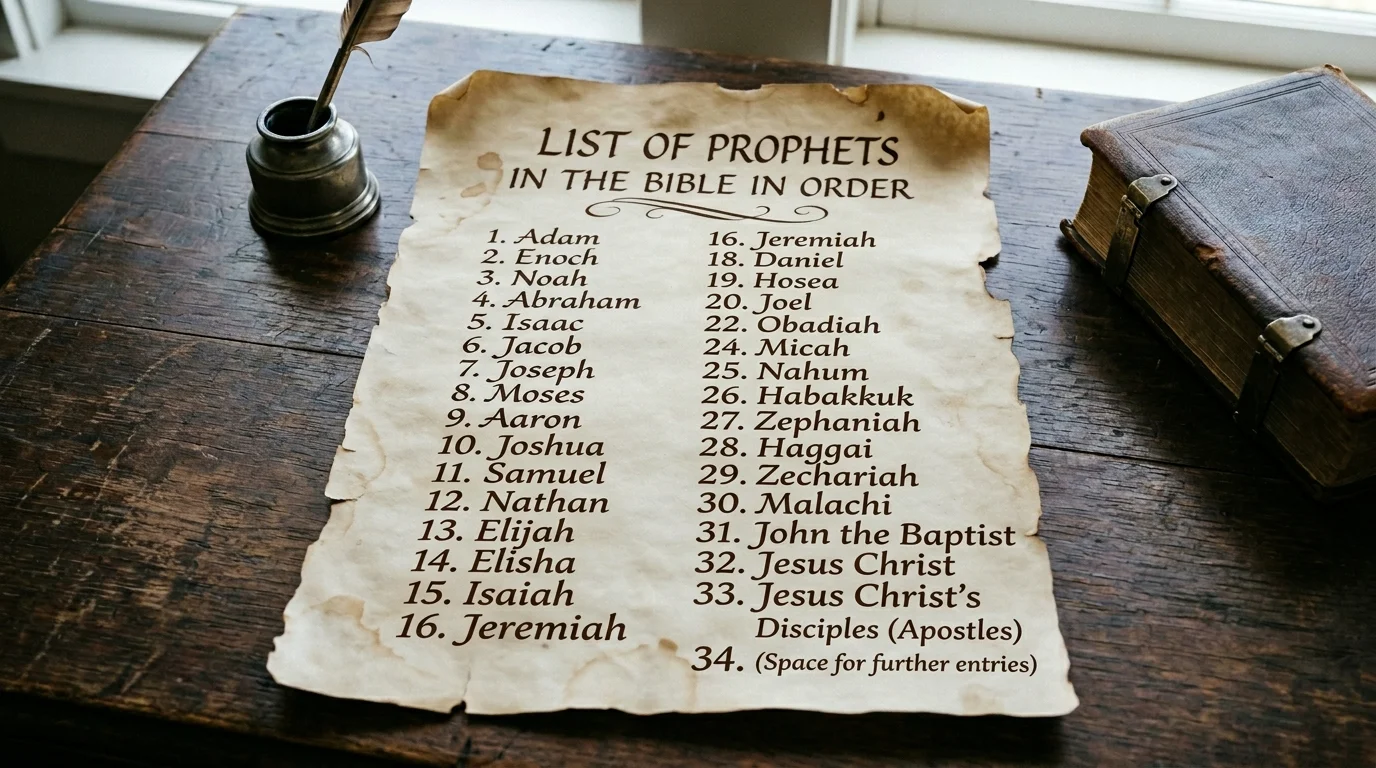 LIST OF PROPHETS
IN THE BIBLE IN ORDER
1. Adam
2. Enoch
3. Noah
4. Abraham
5. Isaac
6. Jacob
7. Joseph
8. Moses
9. Aaron
10. Joshua
11. Samuel
12. Nathan
13. Elijah
14. Elisha
15. Isaiah
16. Jeremiah
16. Jeremiah
18. Daniel
19. Hosea
20. Joel
22. Obadiah
24. Micah
25. Nahum
26. Habakkuk
27. Zephaniah
28. Haggai
29. Zechariah
30. Malachi
31. John the Baptist
32. Jesus Christ
33. Jesus Christ's
Disciples (Apostles)
34. (Space for further entries)